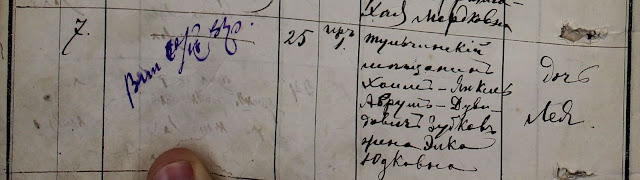 Хая Мордковна
7.
25
тульчинскій
мѣщанинъ
Хаимъ-Янкель
Аврумъ-Дуви-
довичъ Зубковъ
жена Элка
Юдковна
дочь
Лея.